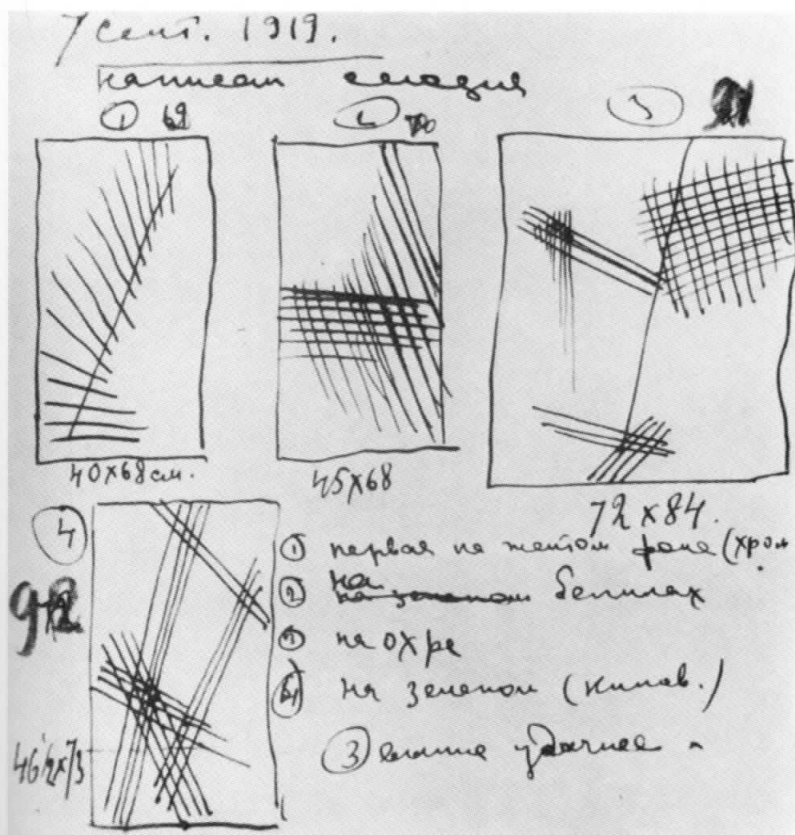 7 сент. 1919.
написал сегодня
① 69 ② 70 ③
40х68 см. 45х68 72х84.
④
92
46 1/2х73
① первая на желтом фоне (хром
② на белилах
③ на охре
④ на зеленом (кинов.)
③ удачнее